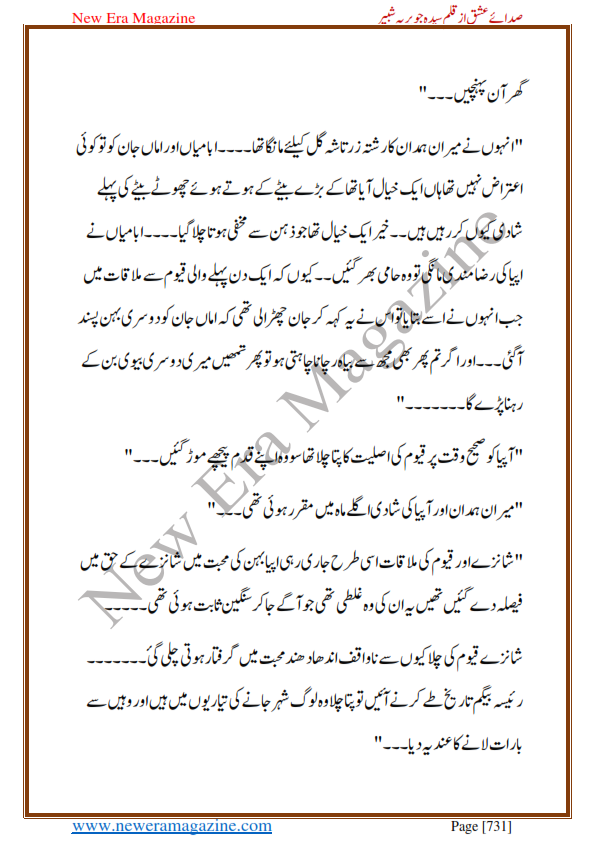 New Era Magazine صدائے عشق از قلم سیدہ جویریہ شبیر
گھر آن پہنچیں۔۔۔"
"انہوں نے میران ہمدان کا رشتہ زرتاشہ گل کیلئے مانگا تھا۔۔۔۔ابامیاں اور اماں جان کو تو کوئی
اعتراض نہیں تھا ہاں ایک خیال آیا تھا کے بڑے بیٹے کے ہوتے ہوئے چھوٹے بیٹے کی پہلے
شادی کیوں کر رہیں ہیں۔۔خیر ایک خیال تھا جو ذہن سے مخفی ہوتا چلا گیا۔۔۔۔ابامیاں نے
اپیا کی رضامندی مانگی تو وہ حامی بھر گئیں۔۔کیوں کہ ایک دن پہلے والی قیوم سے ملاقات میں
جب انہوں نے اسے بتایا تو اس نے یہ کہہ کر جان چھڑالی تھی کہ اماں جان کو دوسری بہن پسند
آگئی۔۔۔اور اگر تم پھر بھی مجھ سے بیاہ رچانا چاہتی ہو تو پھر تمھیں میری دوسری بیوی بن کے
رہنا پڑے گا۔۔۔۔۔۔۔"
"آپیا کو صحیح وقت پر قیوم کی اصلیت کا پتا چلا تھا سو وہ اپنے قدم پیچھے موڑ گئیں۔۔۔"
"میران ہمدان اور آپیا کی شادی اگلے ماہ میں مقرر ہوئی تھی۔۔۔"
"شانزے اور قیوم کی ملاقات اسی طرح جاری رہی اپیا بہن کی محبت میں شانزے کے حق میں
فیصلہ دے گئیں تھیں یہ ان کی وہ غلطی تھی جو آگے جا کر سنگین ثابت ہوئی تھی۔۔۔۔۔
شانزے قیوم کی چلاکیوں سے ناواقف اندھا دھند محبت میں گرفتار ہوتی چلی گئ۔۔۔۔۔۔۔
رئیسہ بیگم تاریخ طے کرنے آئیں تو پتا چلا وہ لوگ شہر جانے کی تیاریوں میں ہیں اور وہیں سے
بارات لانے کا عندیہ دیا۔۔۔"
New Era Magazine
www.neweramagazine.com Page [731]